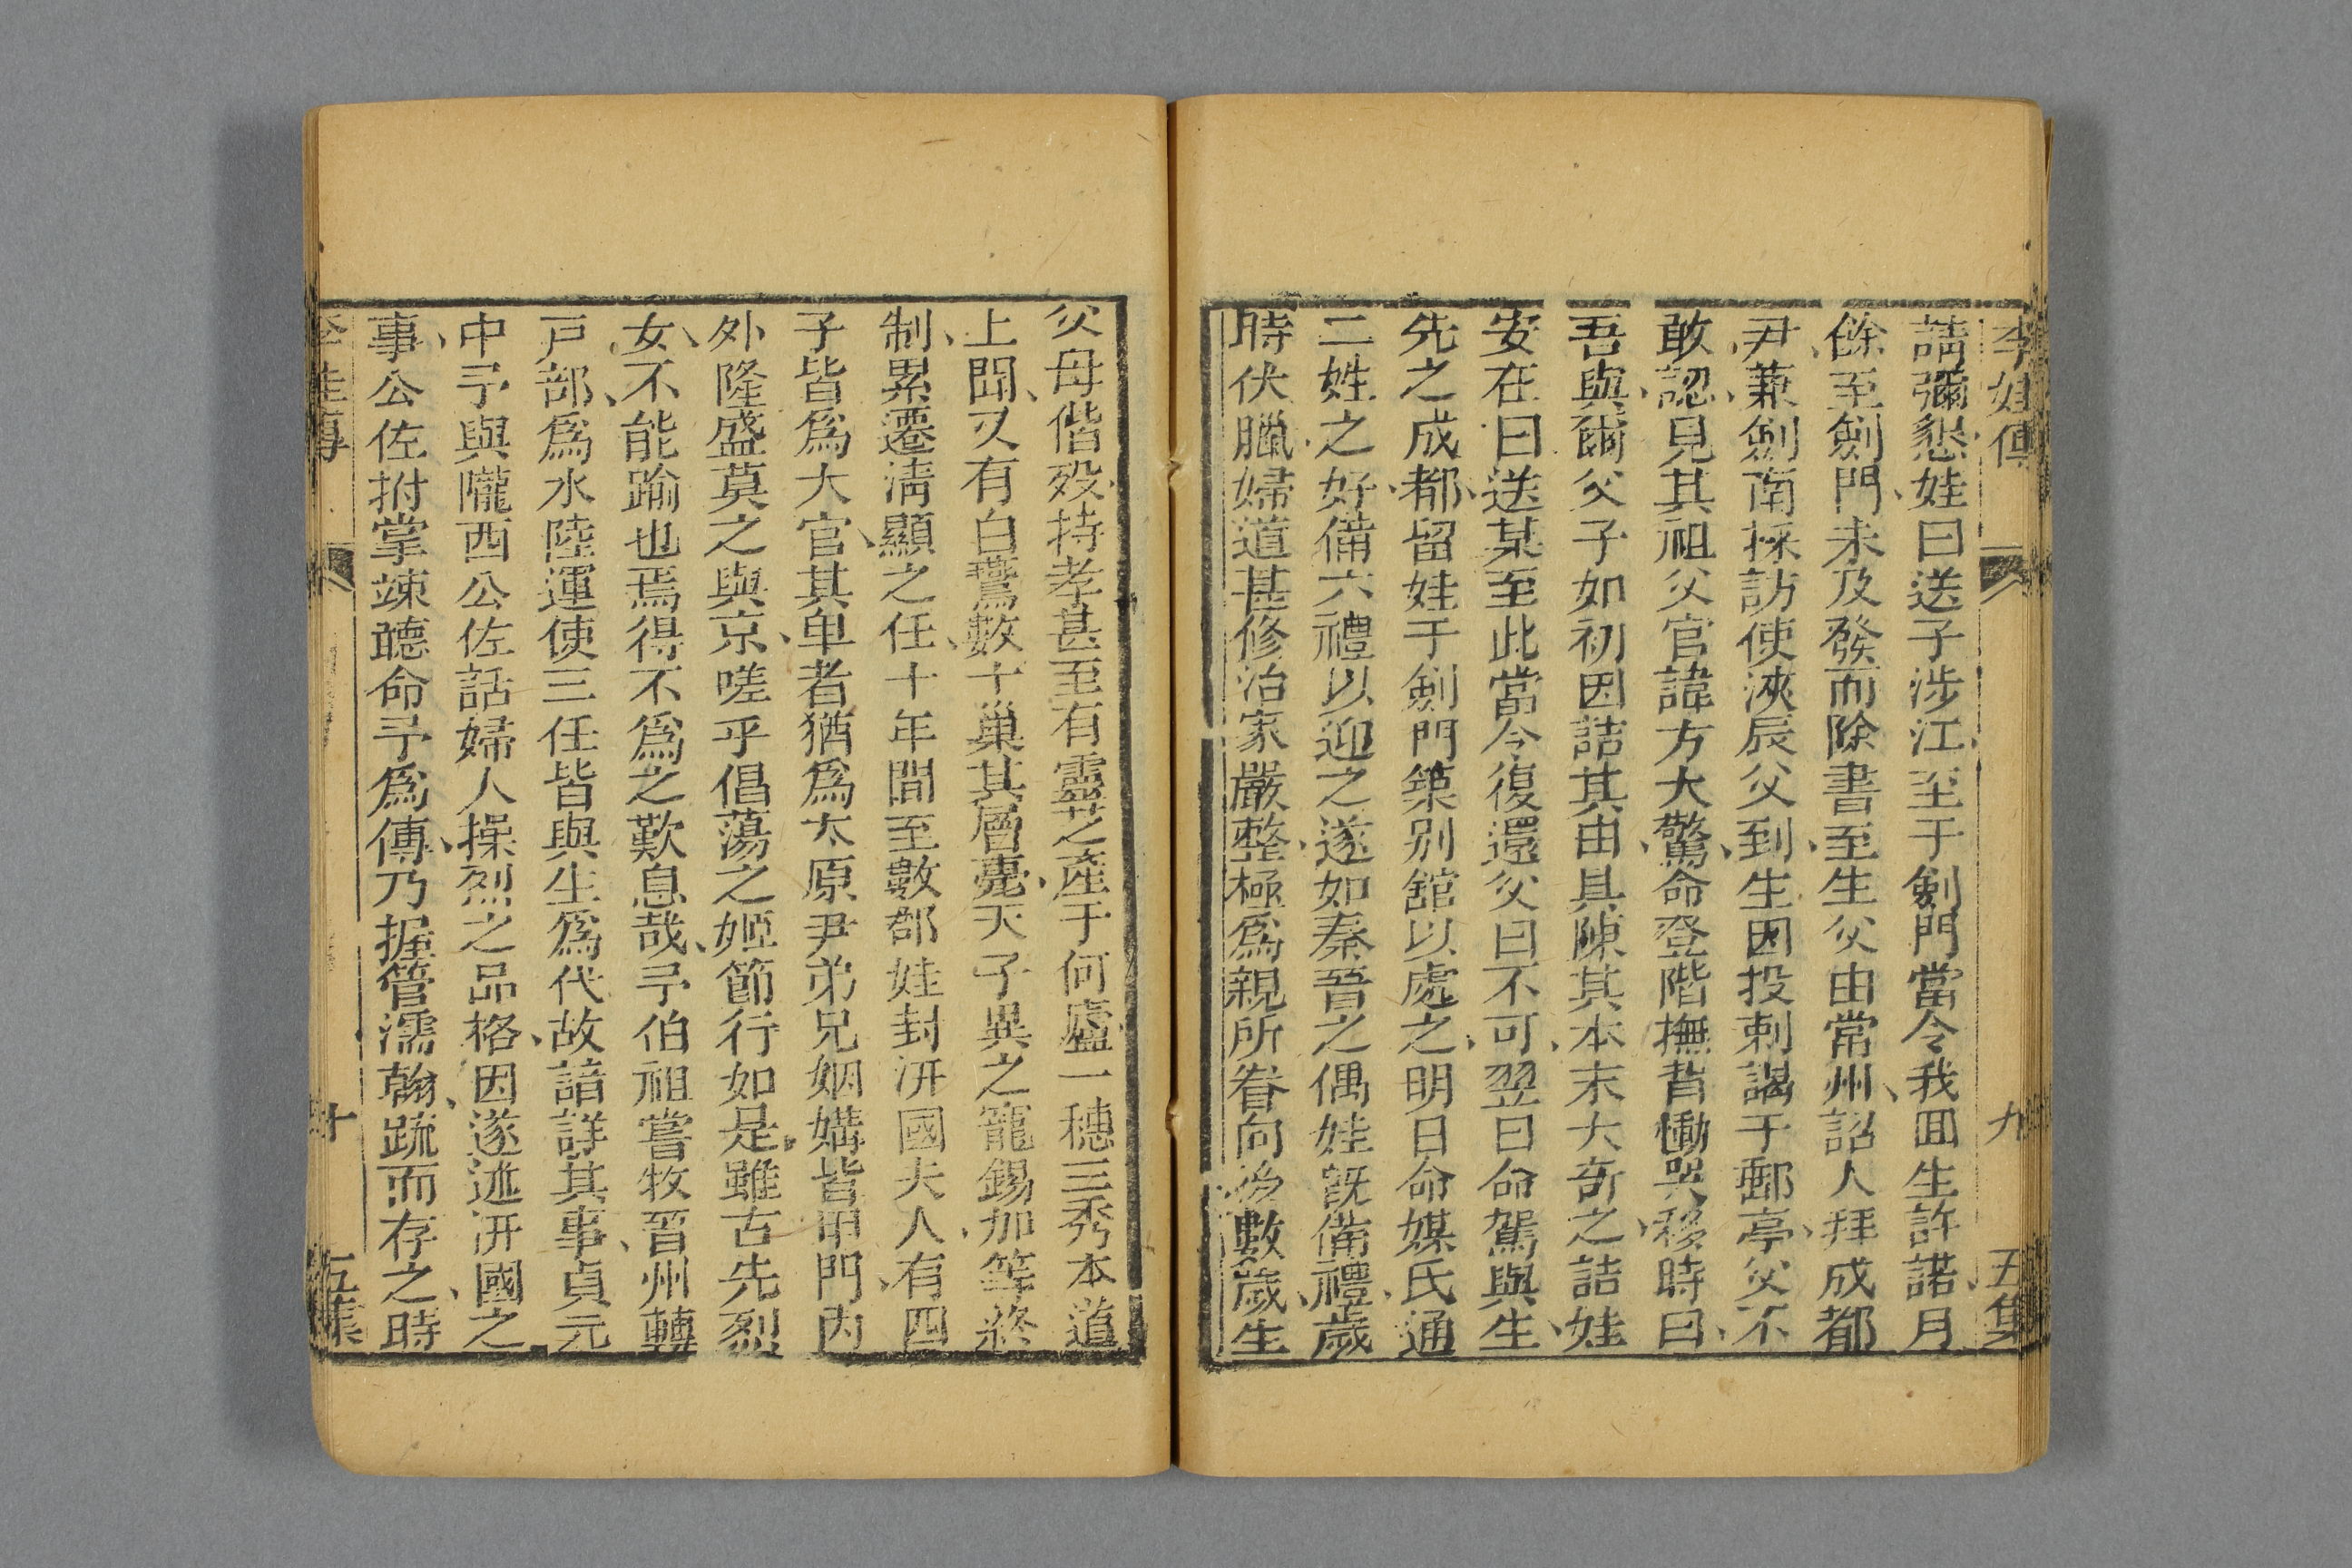 李娃傳 九 五集
請彌懇娃曰送子涉江至于劍門當令我回生許諾月
餘至劍門未及發而除書至生父由常州詔人拜成都
尹兼劍南採訪使浹辰父到生因投刺謁于郵亭父不
敢認見其祖父官諱方大驚命登階撫背慟哭移時曰
吾與爾父子如初因詰其由具陳其本末大奇之詰娃
安在曰送某至此當令復還父曰不可翌日命駕與生
先之成都留娃于劍門築別舘以處之明日命媒氏通
二姓之好備六禮以迎之遂如秦晉之偶娃既備禮歲
時伏臘婦道甚修治家嚴整極爲親所眷向後數歲生
父母偕歿持孝甚至有靈芝產于倚廬一穗三秀本道
上聞又有白鷰數十巢其層甍天子異之寵錫加等終
制累遷淸顯之任十年間至數郡娃封汧國夫人有四
子皆爲大官其卑者猶爲太原尹弟兄姻媾皆甲門內
外隆盛莫之與京嗟乎倡蕩之姬節行如是雖古先烈
女不能踰也焉得不爲之歎息哉予伯祖嘗牧晉州轉
戸部爲水陸運使三任皆與生爲代故諳詳其事貞元
中予與隴西公佐話婦人操烈之品格因遂述汧國之
事公佐拊掌竦聽命予爲傳乃握管濡翰疏而存之時
李娃傳 十 五集